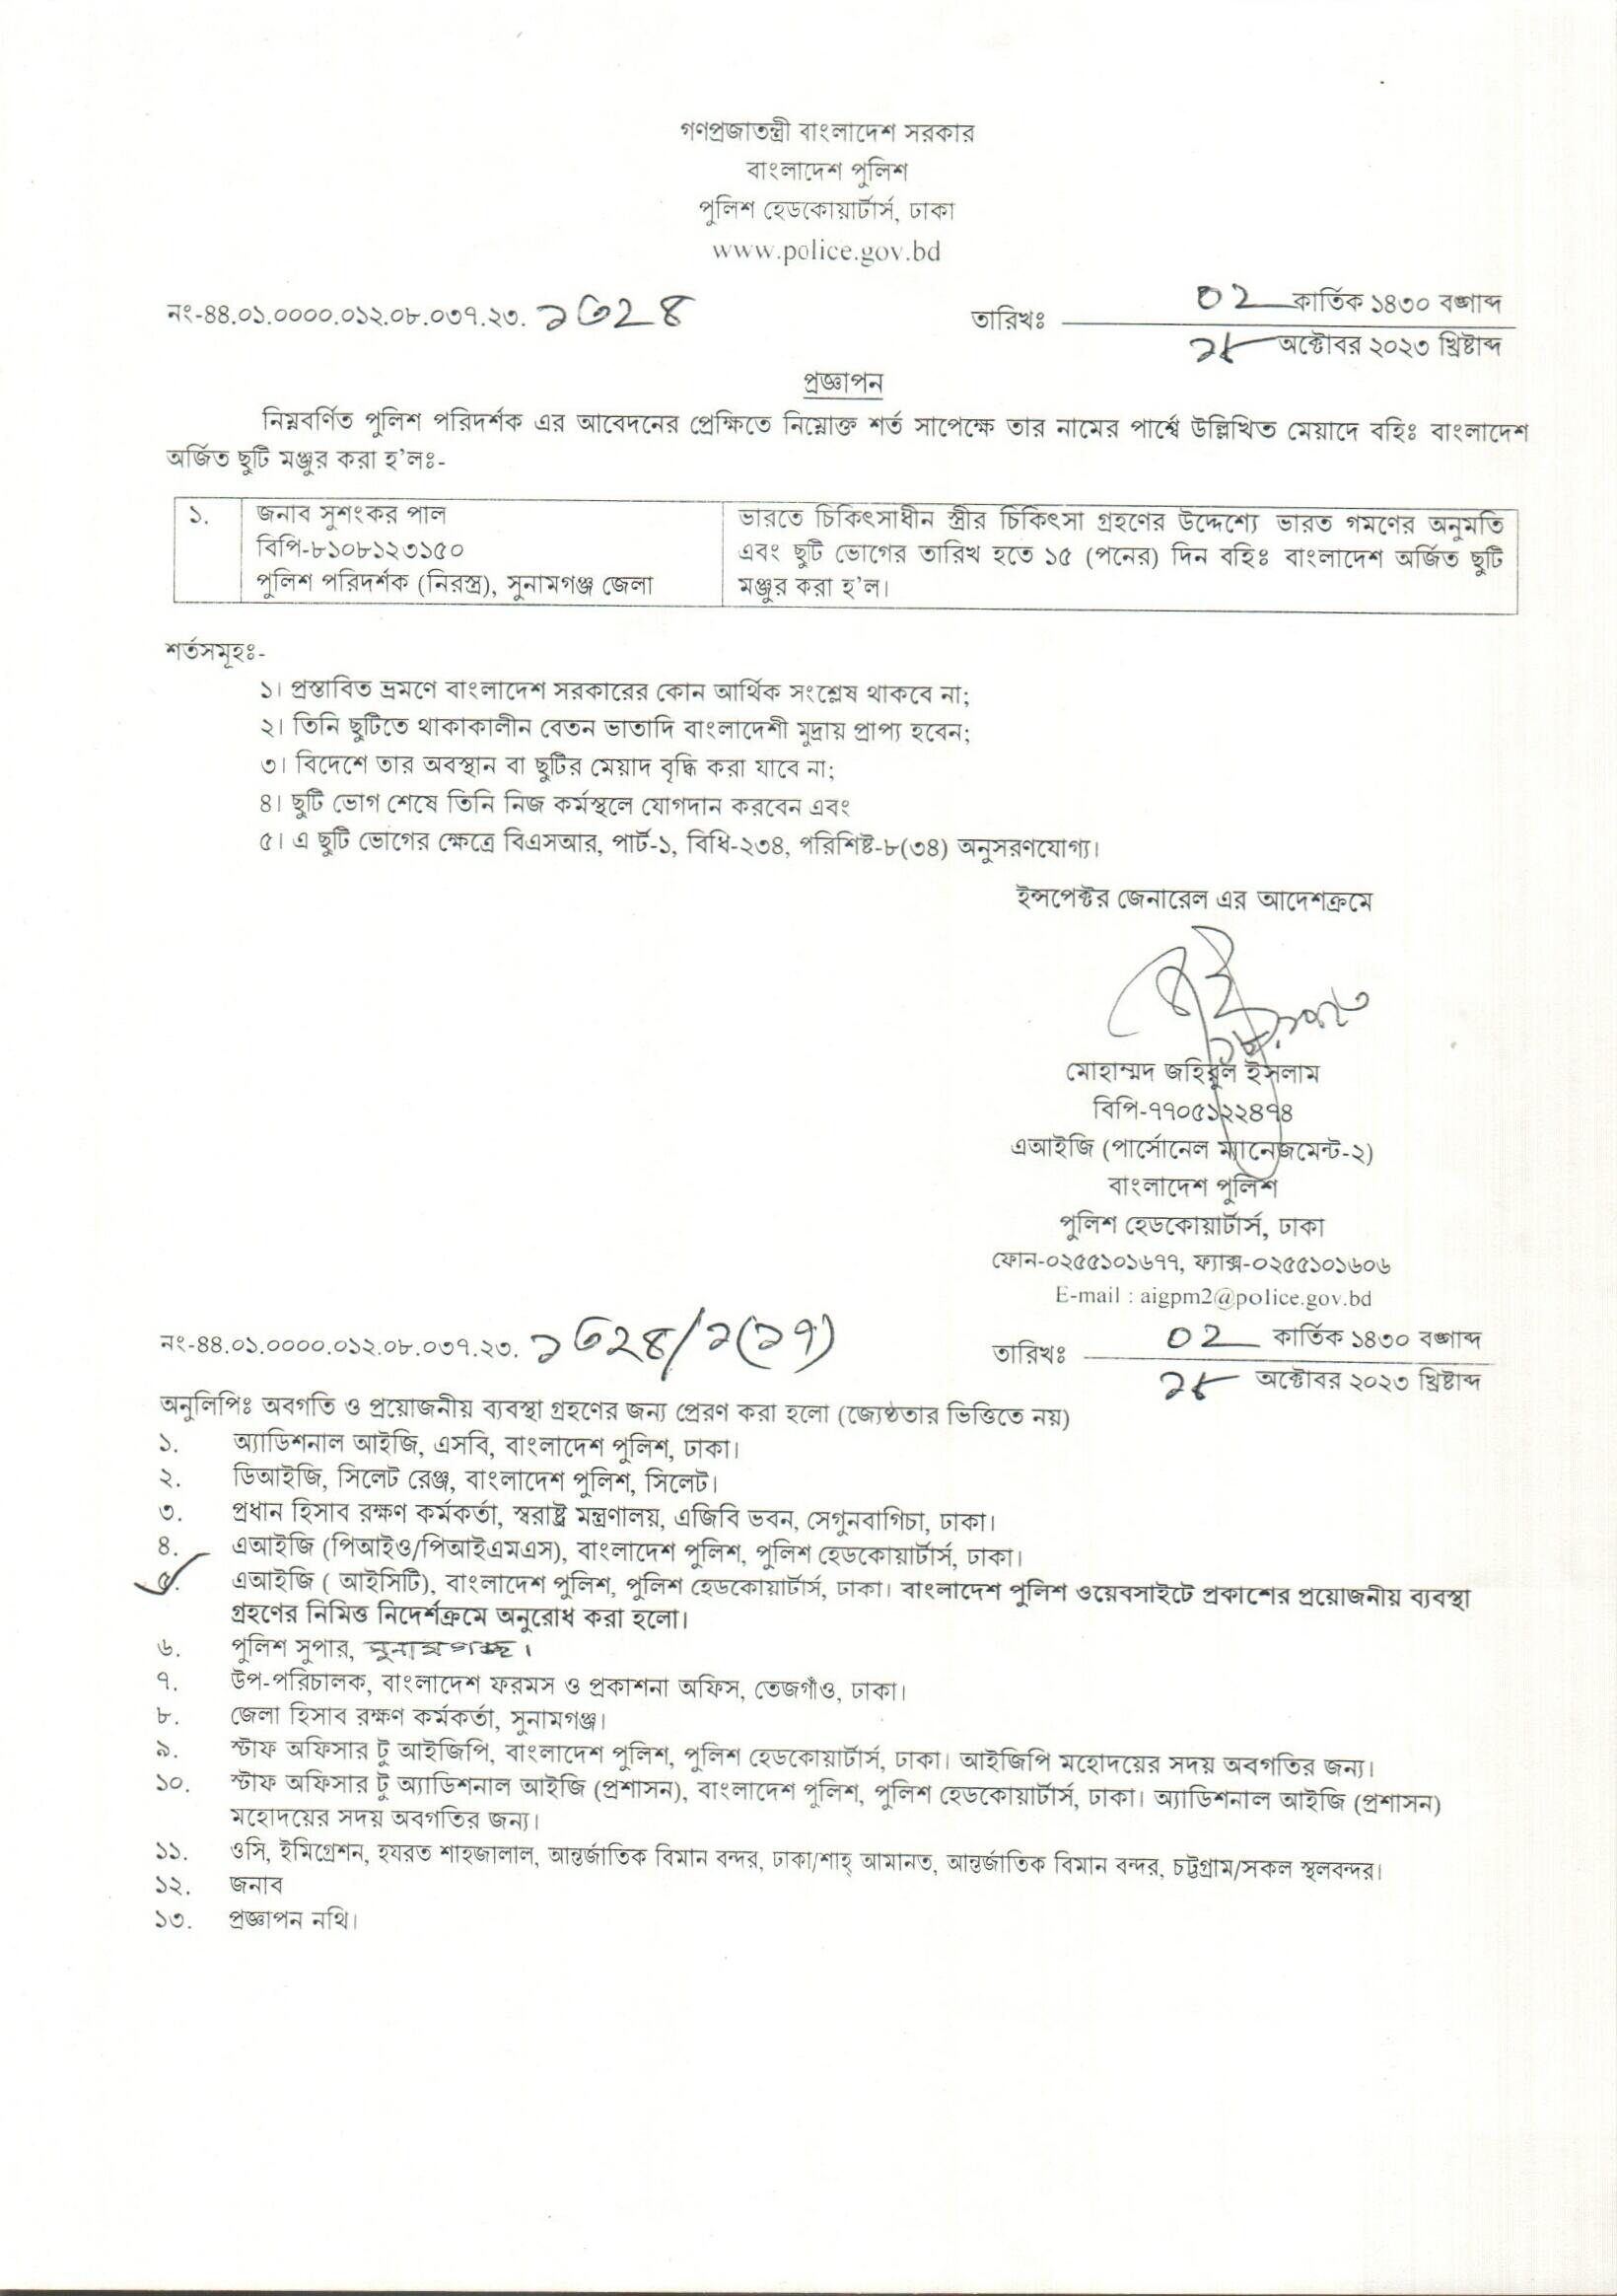 গণপ্রজাতন্ত্রী বাংলাদেশ সরকার
বাংলাদেশ পুলিশ
পুলিশ হেডকোয়ার্টার্স, ঢাকা
www.police.gov.bd
নং-৪৪.০১.০০০০.০১২.০৮.০৩৭.২৩.
০২ কার্তিক ১৪৩০ বঙ্গাব্দ
তারিখঃ
১৮ অক্টোবর ২০২৩ খ্রিষ্টাব্দ
প্রজ্ঞাপন
নিম্নবর্ণিত পুলিশ পরিদর্শক এর আবেদনের প্রেক্ষিতে নিম্নোক্ত শর্ত সাপেক্ষে তার নামের পার্শ্বে উল্লিখিত মেয়াদে বহিঃ বাংলাদেশ
অর্জিত ছুটি মঞ্জুর করা হ'লঃ-
১.
জনাব সুশংকর পাল
বিপি-৮১০৮১২৩১৫০
পুলিশ পরিদর্শক (নিরস্ত্র), সুনামগঞ্জ জেলা
ভারতে চিকিৎসাধীন স্ত্রীর চিকিৎসা গ্রহণের উদ্দেশ্যে ভারত গমণের অনুমতি
এবং ছুটি ভোগের তারিখ হতে ১৫ (পনের) দিন বহিঃ বাংলাদেশ অর্জিত ছুটি
মঞ্জুর করা হ'ল।
শর্তসমূহঃ-
১। প্রস্তাবিত ভ্রমণে বাংলাদেশ সরকারের কোন আর্থিক সংশ্লেষ থাকবে না;
২। তিনি ছুটিতে থাকাকালীন বেতন ভাতাদি বাংলাদেশী মুদ্রায় প্রাপ্য হবেন;
৩। বিদেশে তার অবস্থান বা ছুটির মেয়াদ বৃদ্ধি করা যাবে না;
৪। ছুটি ভোগ শেষে তিনি নিজ কর্মস্থলে যোগদান করবেন এবং
৫। এ ছুটি ভোগের ক্ষেত্রে বিএসআর, পার্ট-১, বিধি-২৩৪, পরিশিষ্ট-৮(৩৪) অনুসরণযোগ্য।
ইন্সপেক্টর জেনারেল এর আদেশক্রমে
মোহাম্মদ জহিরুল ইসলাম
বিপি-৭৭০৫১২২৪৭৪
এআইজি (পার্সোনেল ম্যানেজমেন্ট-২)
বাংলাদেশ পুলিশ
পুলিশ হেডকোয়ার্টার্স, ঢাকা
ফোন-০২৫৫১০১৬৭৭, ফ্যাক্স-০২৫৫১০১৬০৬
E-mail : aigpm2@police.gov.bd
নং-৪৪.০১.০০০০.০১২.০৮.০৩৭.২৩.
০২ কার্তিক ১৪৩০ বঙ্গাব্দ
তারিখঃ
১৮ অক্টোবর ২০২৩ খ্রিষ্টাব্দ
অনুলিপিঃ অবগতি ও প্রয়োজনীয় ব্যবস্থা গ্রহণের জন্য প্রেরণ করা হলো (জ্যেষ্ঠতার ভিত্তিতে নয়)
১. অ্যাডিশনাল আইজি, এসবি, বাংলাদেশ পুলিশ, ঢাকা।
২. ডিআইজি, সিলেট রেঞ্জ, বাংলাদেশ পুলিশ, সিলেট।
৩. প্রধান হিসাব রক্ষণ কর্মকর্তা, স্বরাষ্ট্র মন্ত্রণালয়, এজিবি ভবন, সেগুনবাগিচা, ঢাকা।
৪. এআইজি (পিআইও/পিআইএমএস), বাংলাদেশ পুলিশ, পুলিশ হেডকোয়ার্টার্স, ঢাকা।
৫. এআইজি ( আইসিটি), বাংলাদেশ পুলিশ, পুলিশ হেডকোয়ার্টার্স, ঢাকা। বাংলাদেশ পুলিশ ওয়েবসাইটে প্রকাশের প্রয়োজনীয় ব্যবস্থা
গ্রহণের নিমিত্ত নিদের্শক্রমে অনুরোধ করা হলো।
৬. পুলিশ সুপার, সুনামগঞ্জ।
৭. উপ-পরিচালক, বাংলাদেশ ফরমস ও প্রকাশনা অফিস, তেজগাঁও, ঢাকা।
৮. জেলা হিসাব রক্ষণ কর্মকর্তা, সুনামগঞ্জ।
৯. স্টাফ অফিসার টু আইজিপি, বাংলাদেশ পুলিশ, পুলিশ হেডকোয়ার্টার্স, ঢাকা। আইজিপি মহোদয়ের সদয় অবগতির জন্য।
১০. স্টাফ অফিসার টু অ্যাডিশনাল আইজি (প্রশাসন), বাংলাদেশ পুলিশ, পুলিশ হেডকোয়ার্টার্স, ঢাকা। অ্যাডিশনাল আইজি (প্রশাসন)
মহোদয়ের সদয় অবগতির জন্য।
১১. ওসি, ইমিগ্রেশন, হযরত শাহজালাল, আন্তর্জাতিক বিমান বন্দর, ঢাকা/শাহ্ আমানত, আন্তর্জাতিক বিমান বন্দর, চট্টগ্রাম/সকল স্থলবন্দর।
১২. জনাব
১৩. প্রজ্ঞাপন নথি।